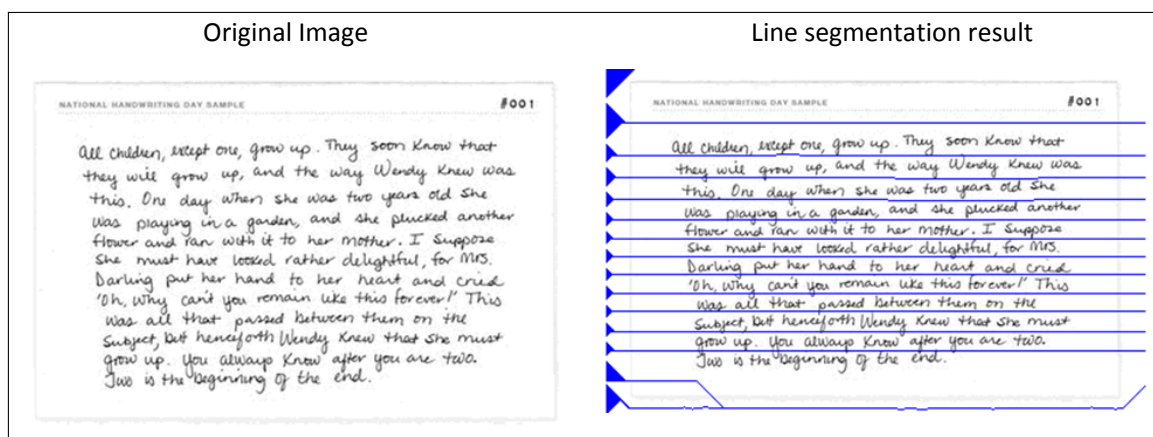 Original Image
NATIONAL HANDWRITING DAY SAMPLE #001
All children, except one, grow up. They soon know that
they will grow up, and the way Wendy knew was
this. One day when she was two years old she
was playing in a garden, and she plucked another
flower and ran with it to her mother. I suppose
she must have looked rather delightful, for Mrs.
Darling put her hand to her heart and cried
'Oh, why can't you remain like this forever!' This
was all that passed between them on the
subject, but henceforth Wendy knew that she must
grow up. You always know after you are two.
Two is the beginning of the end.
Line segmentation result
NATIONAL HANDWRITING DAY SAMPLE #001
All children, except one, grow up. They soon know that
they will grow up, and the way Wendy knew was
this. One day when she was two years old she
was playing in a garden, and she plucked another
flower and ran with it to her mother. I suppose
she must have looked rather delightful, for Mrs.
Darling put her hand to her heart and cried
'Oh, why can't you remain like this forever!' This
was all that passed between them on the
subject, but henceforth Wendy knew that she must
grow up. You always know after you are two.
Two is the beginning of the end.